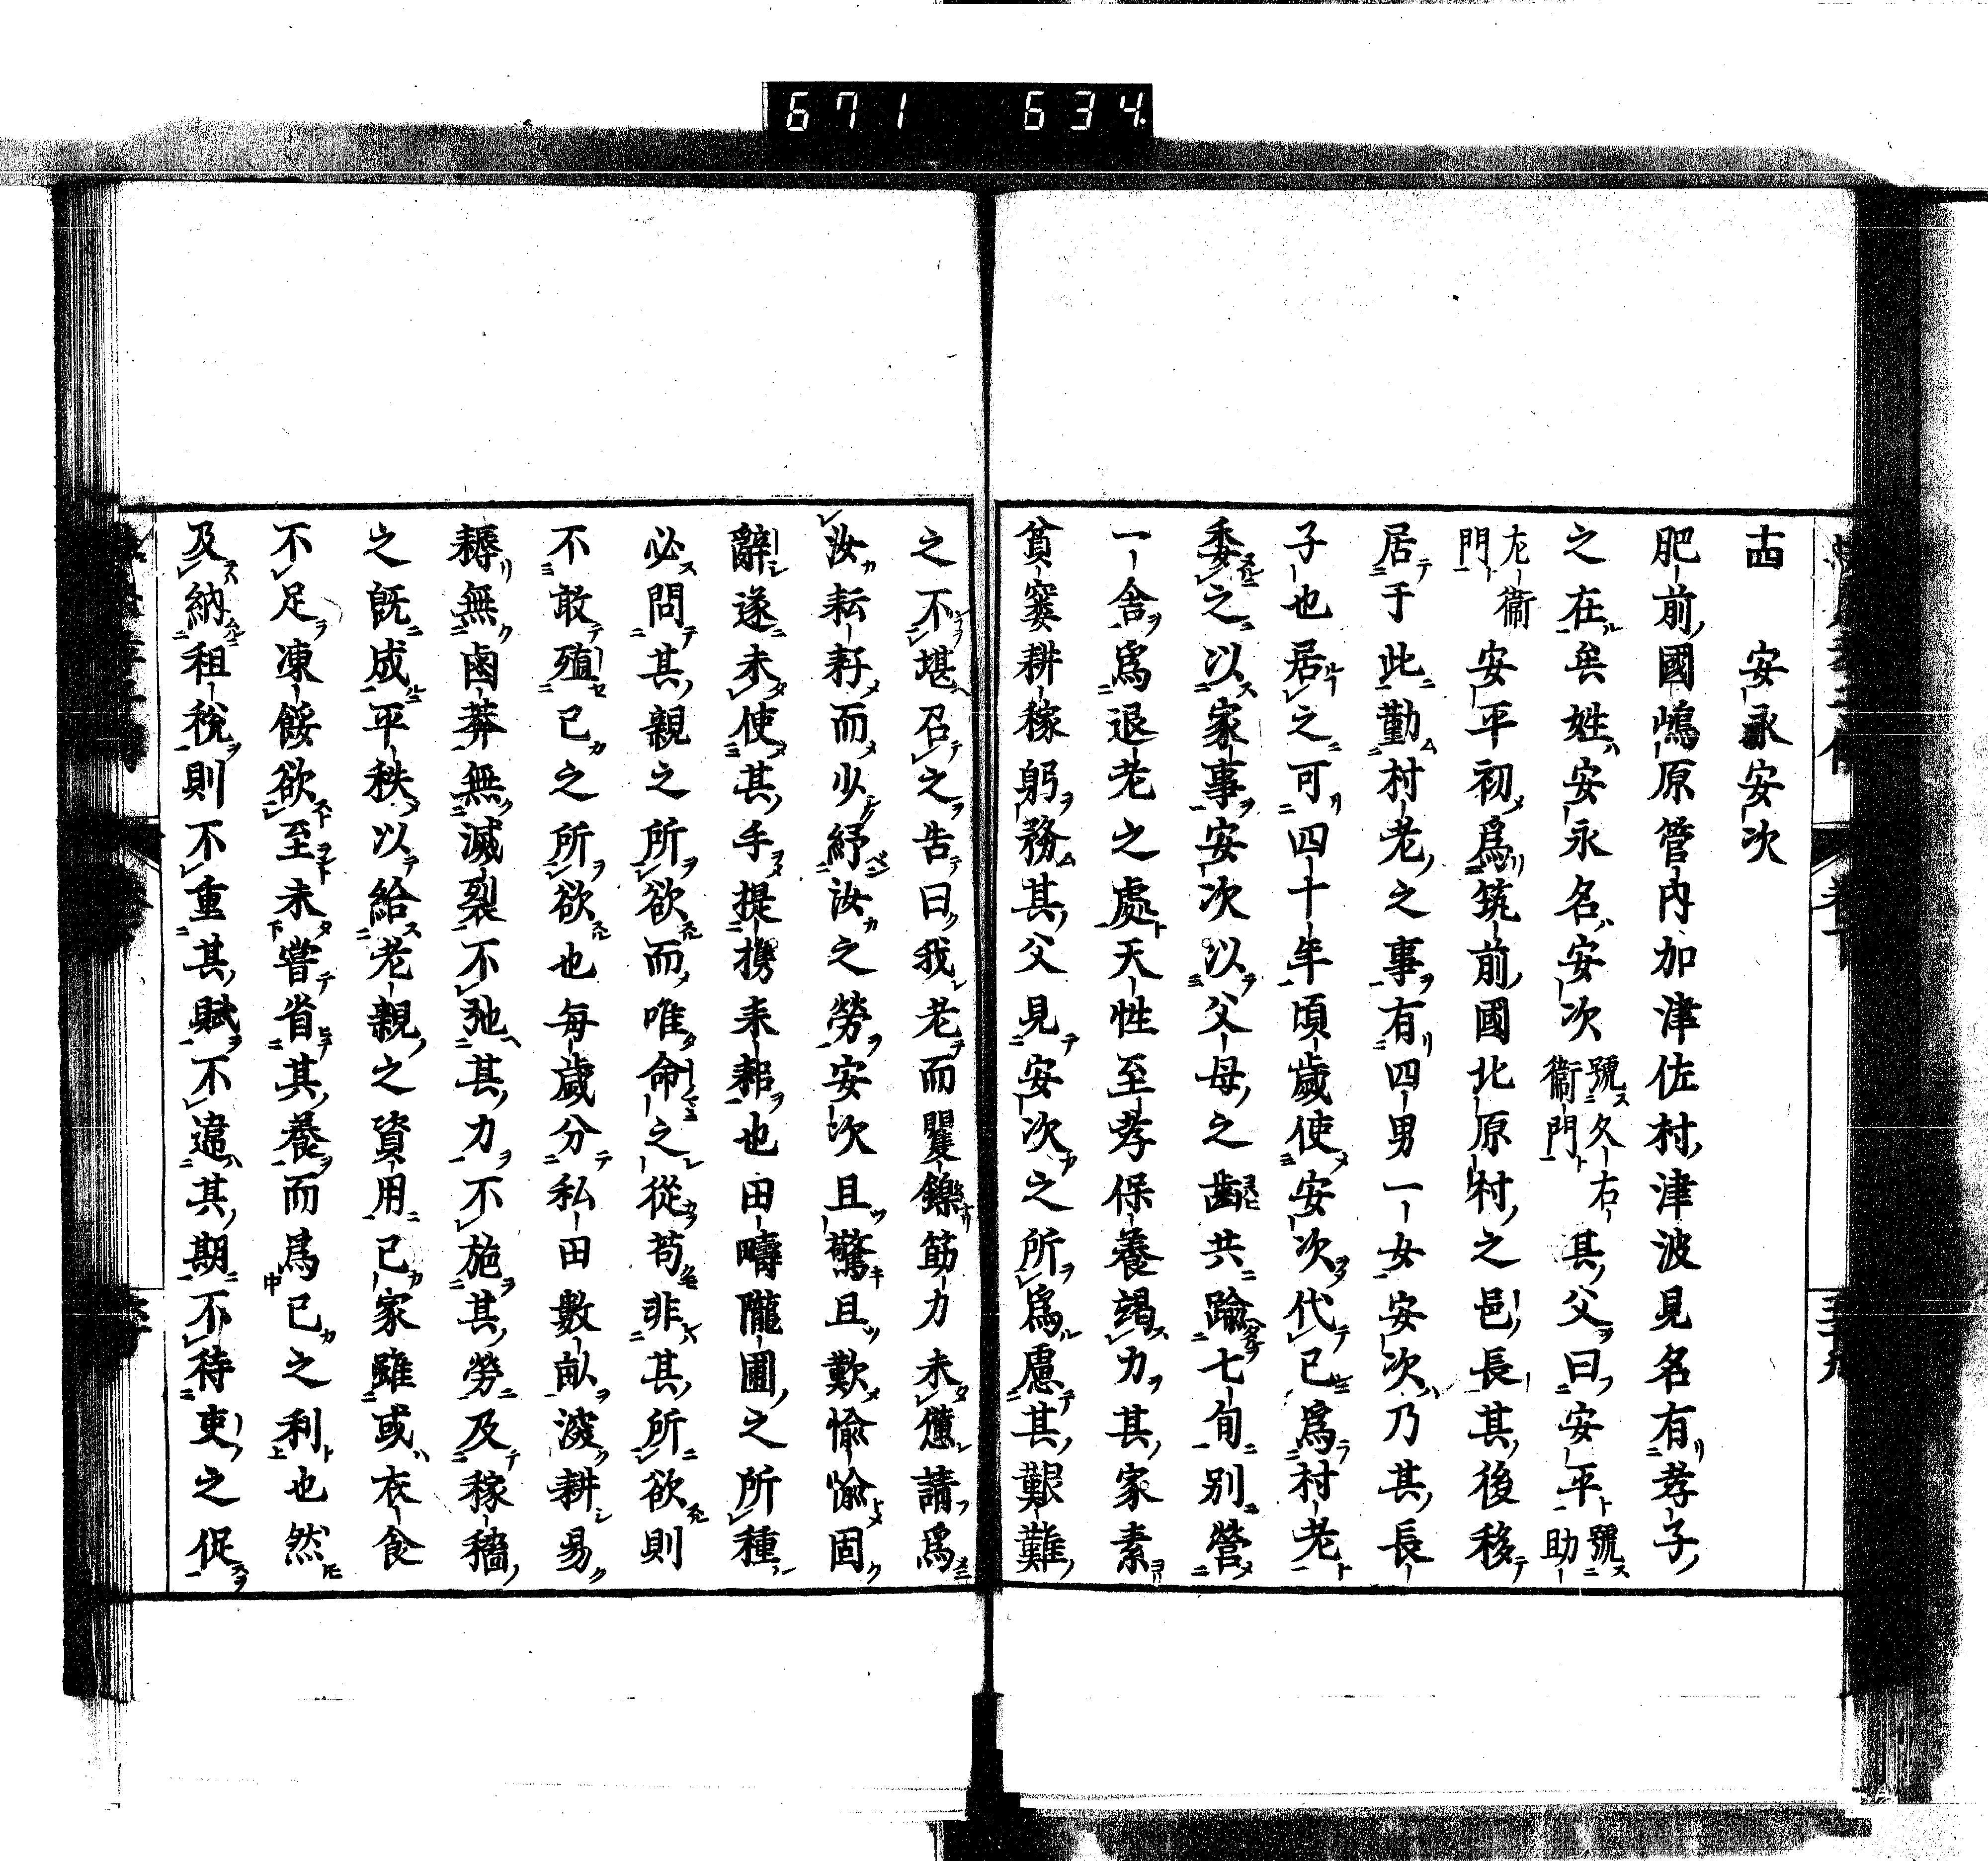 671 634
㐂 安永安次
肥前國嶋原管内加津佐村津波見名有孝子
之在矣姓安永名安次號久右衞門其父曰安平號助
左衞門安平初爲筑前國北原村之邑長其後移
居于此勤村老之事有四男一女安次乃其長
子也居之可四十年頃歲使安次代已爲村老
委之以家事安次以父母之齒共踰七旬別營
一舍爲退老之處天性至孝保養竭力其家素
貧窶耕稼躬務其父見安次之所爲慮其艱難
之不堪召之告曰我老而矍鑠筋力未憊請爲
汝耘耔而少紓汝之勞安次且驚且歎愉愉固
辭遂未使其手提攜耒耜也田疇隴圃之所種
必問其親之所欲而唯命之從苟非其所欲則
不敢殖已之所欲也每歲分私田數畝深耕易
耨無鹵莽無滅裂不弛其力不施其勞及稼穡
之既成平秩以給老親之資用已家雖或衣食
不足凍餒欲至未嘗省其養而爲已之利也然
及納租稅則不重其賦不違其期不待吏之促